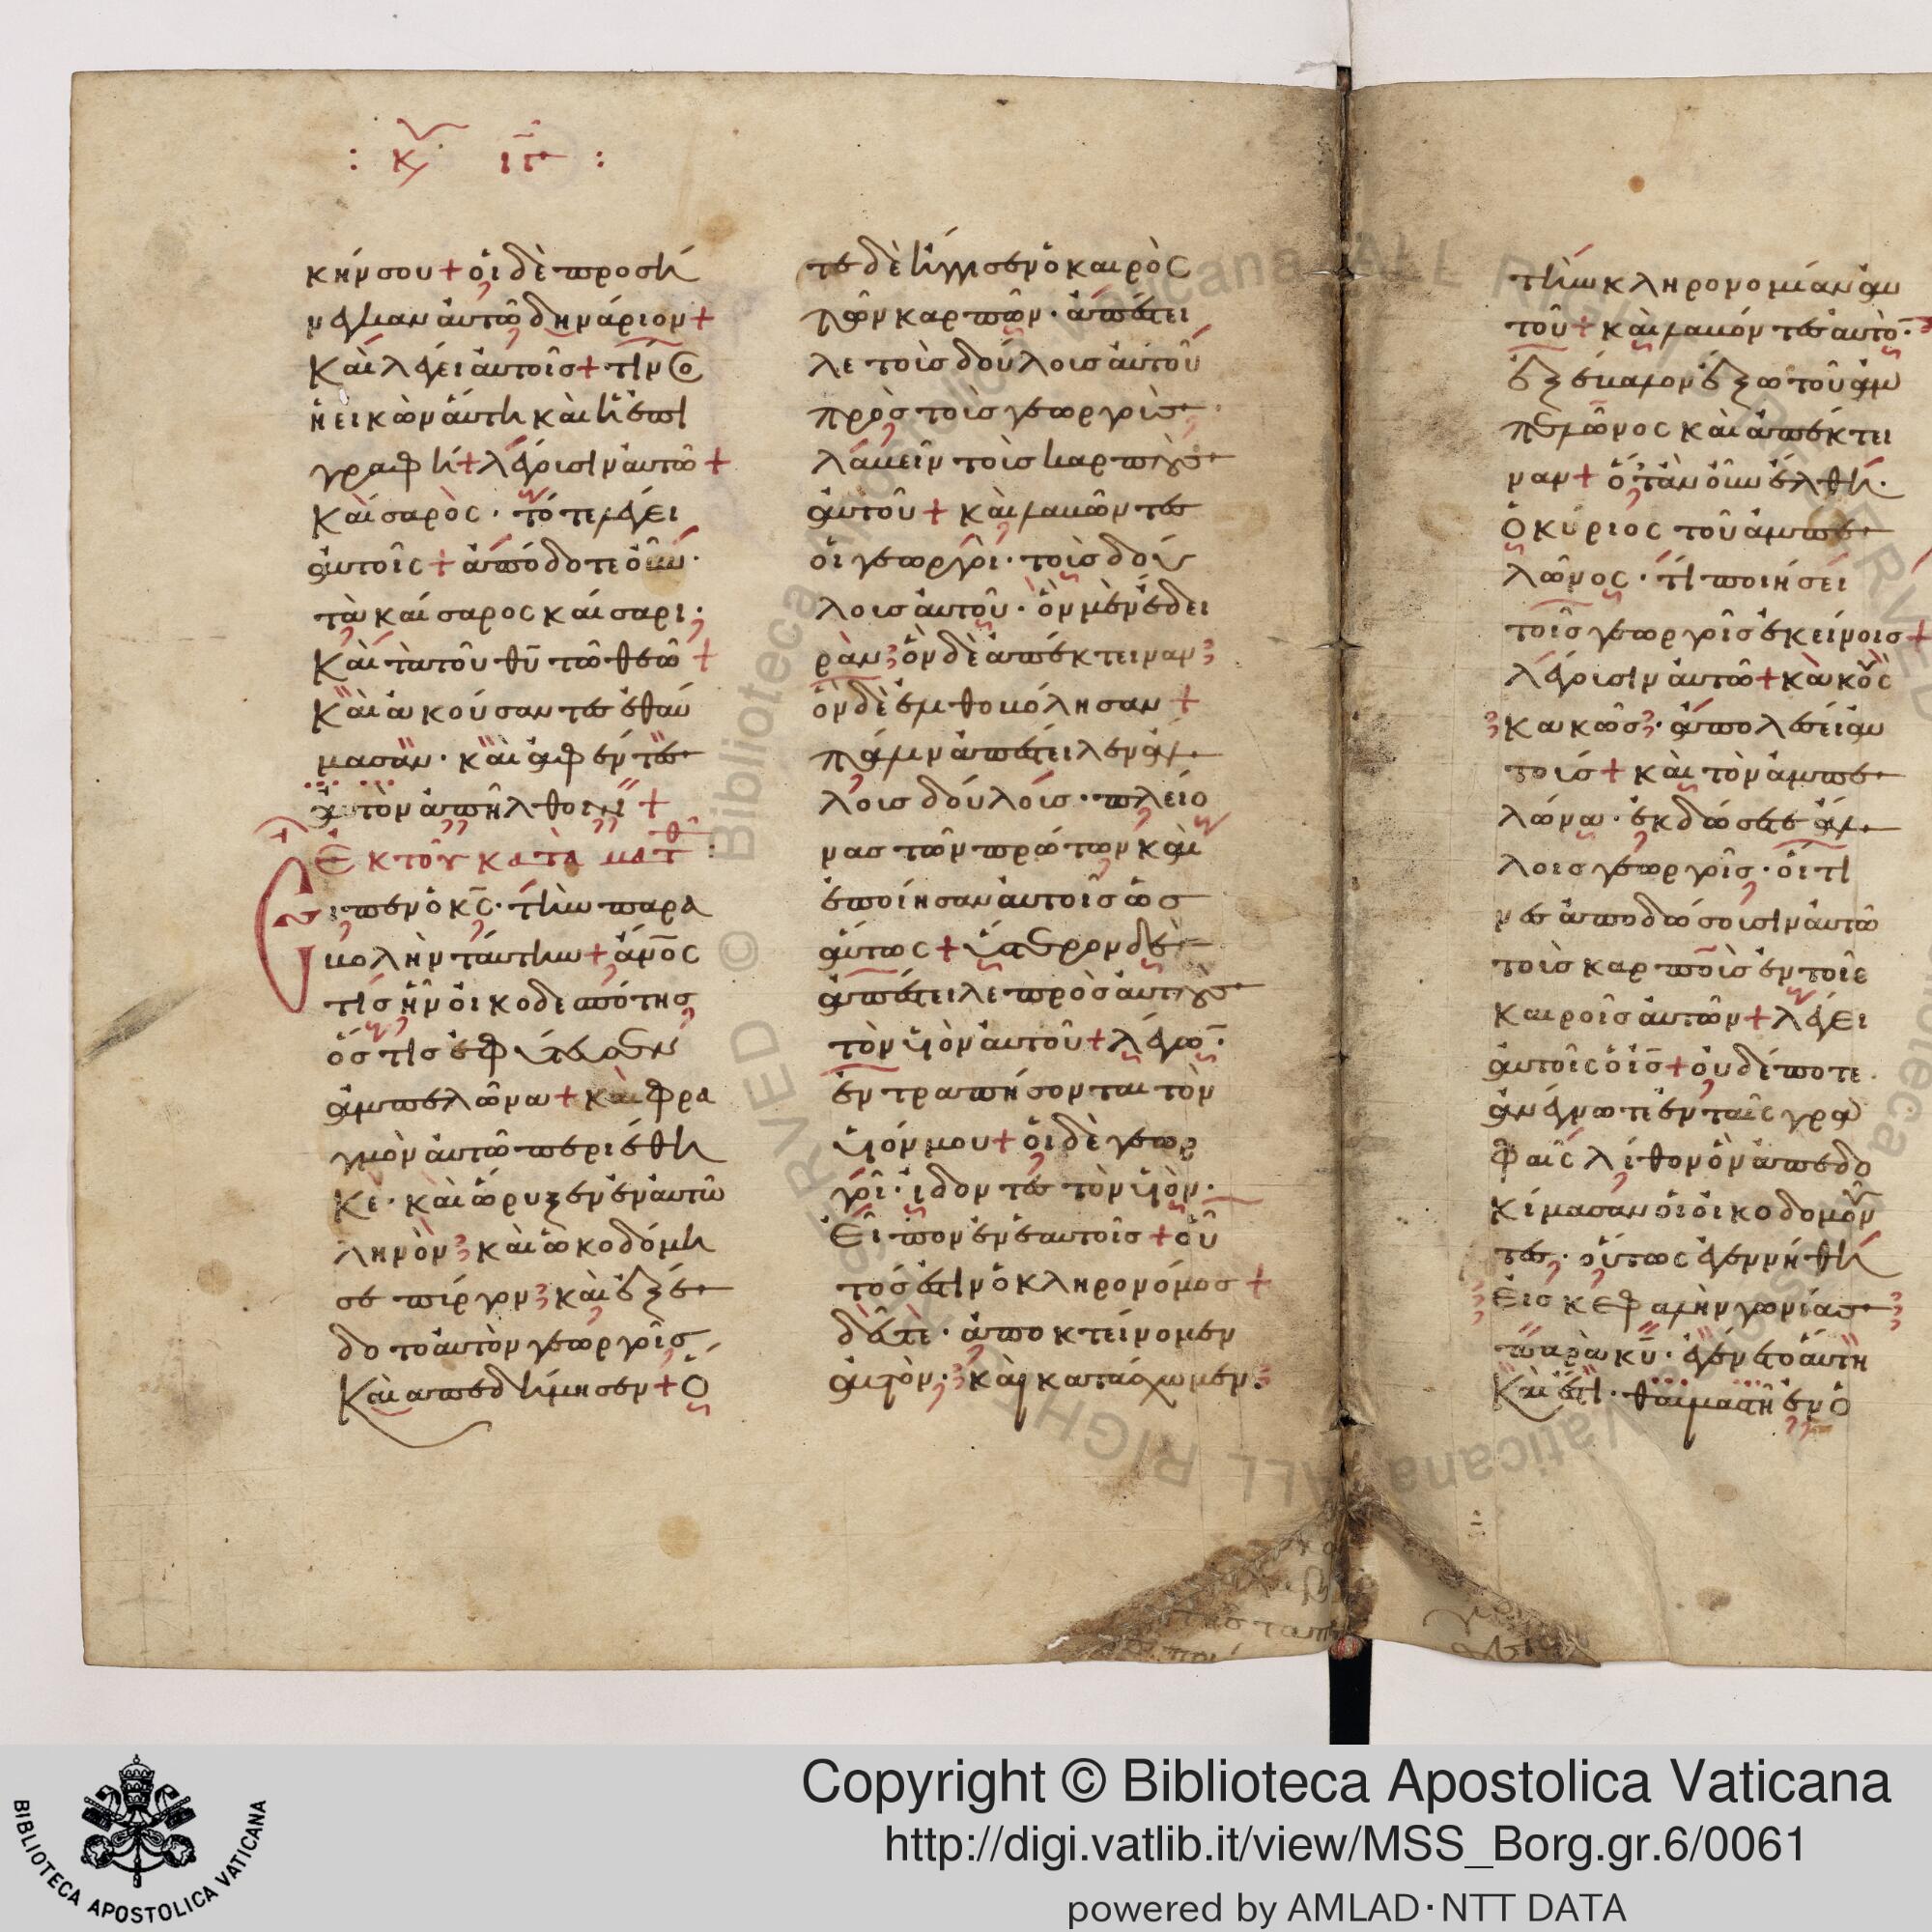 : Κυ ιγ :
κήνσου + οἱ δὲ προσή
νεγκαν αὐτῶ δηνάριον +
Καὶ λέγει αὐτοῖσ + τίνος
ἡ εἰκὼν ἅυτη καὶ ἡ ἐπι
γραφή + λέγουσιν αὐτῶ +
Καίσαρὸς · τότε λέγει
αὐτοῖς + ἀπόδοτε οὖν ·
τὰ καίσαρος καίσαρι ·
Καὶ τὰ τοῦ θῦ τῶ θεῶ +
Καὶ ἀκούσαντες ἐθαύ
μασαν · καὶ ἀφέντες
ἀυτὸν ἀπῆλθον +
Ἐκ τοῦ κατὰ ματθ :
Εἶπεν ὁ κς · τὴν παρα
βολὴν ταύτην + ἄνος
τίσ ἦν οἰκοδεσπότησ
ὅστισ ἐφύτευσεν
ἀμπελῶνα + καὶ φρα
γμὸν αὐτῶ περιέθη
κε · καὶ ὤρυξεν ἐν αὐτῶ
ληνὸν καὶ ὠκοδόμη
σε πύργον καὶ ἐξέ
δοτο αὐτὸν γεωργοῖσ
Καὶ απεδήμησεν + Ὁ
τε δὲ ἤγγισεν ὁ καιρὸς
τῶν καρπῶν · ἀπέστει
λε τοὺσ δούλουσ αὐτοῦ
πρὸσ τοὺσ γεωργοὺσ
λαβεῖν τοὺσ καρποὺσ
αὐτοῦ + καὶ λαβῶντες
οἱ γεωργοὶ · τοὺσ δού
λουσ αὐτοῦ · ὃν μὲν ἔδει
ραν ὃν δὲ ἀπέκτειναν
ὃν δὲ ἐλιθοβόλησαν +
πάλιν ἀπέστειλεν ἄλ
λουσ δούλουσ · πλείο
νασ τῶν πρώτων καὶ
ἐποίησαν αὐτοῖσ ὡσ
αύτως + ὕστερον δὲ
ἀπέστειλε πρὸσ αὐτοὺσ
τὸν υἱὸν αὐτοῦ + λέγων ·
ἐντραπήσονται τὸν
υἱόν μου + οἱ δὲ γεωρ
γοὶ · ἰδόντες τὸν υἱὸν ·
Εἶπον ἐν ἑαυτοῖσ + οὗ
τόσ ἐστιν ὁ κληρονόμοσ +
δεῦτε · ἀποκτείνομεν
αὐτὸν · καὶ κατάσχωμεν
τὴν κληρονομίαν αὐ
τοῦ + καὶ λαβόντες αὐτὸν ·
ἐξέβαλον ἔξω τοῦ ἀμ
πελῶνος καὶ ἀπέκτει
ναν + ὅταν οὖν ἔλθη ·
Ὁ κύριος τοῦ ἀμπε
λῶνος · τί ποιήσει
τοῖσ γεωργοῖσ ἐκείνοισ +
λέγουσιν αὐτῶ + κακοὺς
Κακῶσ · ἀπολέσει αὐ
τούσ + καὶ τὸν ἀμπε
λώνα · ἐκδώσεται ἄλ
λοισ γεωργοῖσ · οἵτι
νεσ ἀποδώσουσιν αὐτῶ
τοὺσ καρποὺσ ἐν τοῖς
καιροῖσ αὐτῶν + λέγει
αὐτοῖς ὁ ισ + οὐδέποτε
ἀνέγνωτε ἐν ταῖς γρα
φαῖς λίθον ὃν ἀπεδο
κίμασαν οἱ οἰκοδομοῦν
τες · οὗτος ἐγεννήθη
Εἰσ κεφαλὴν γωνίασ
παρὰ κῦ · ἐγένετο αὕτη
Καὶ ἔστι · θαυμαστὴ ἐν ὀ
© Biblioteca Apostolica Vaticana ALL RIGHTS RESERVED
BIBLIOTECA APOSTOLICA VATICANA
Copyright © Biblioteca Apostolica Vaticana
http://digi.vatlib.it/view/MSS_Borg.gr.6/0061
powered by AMLAD·NTT DATA